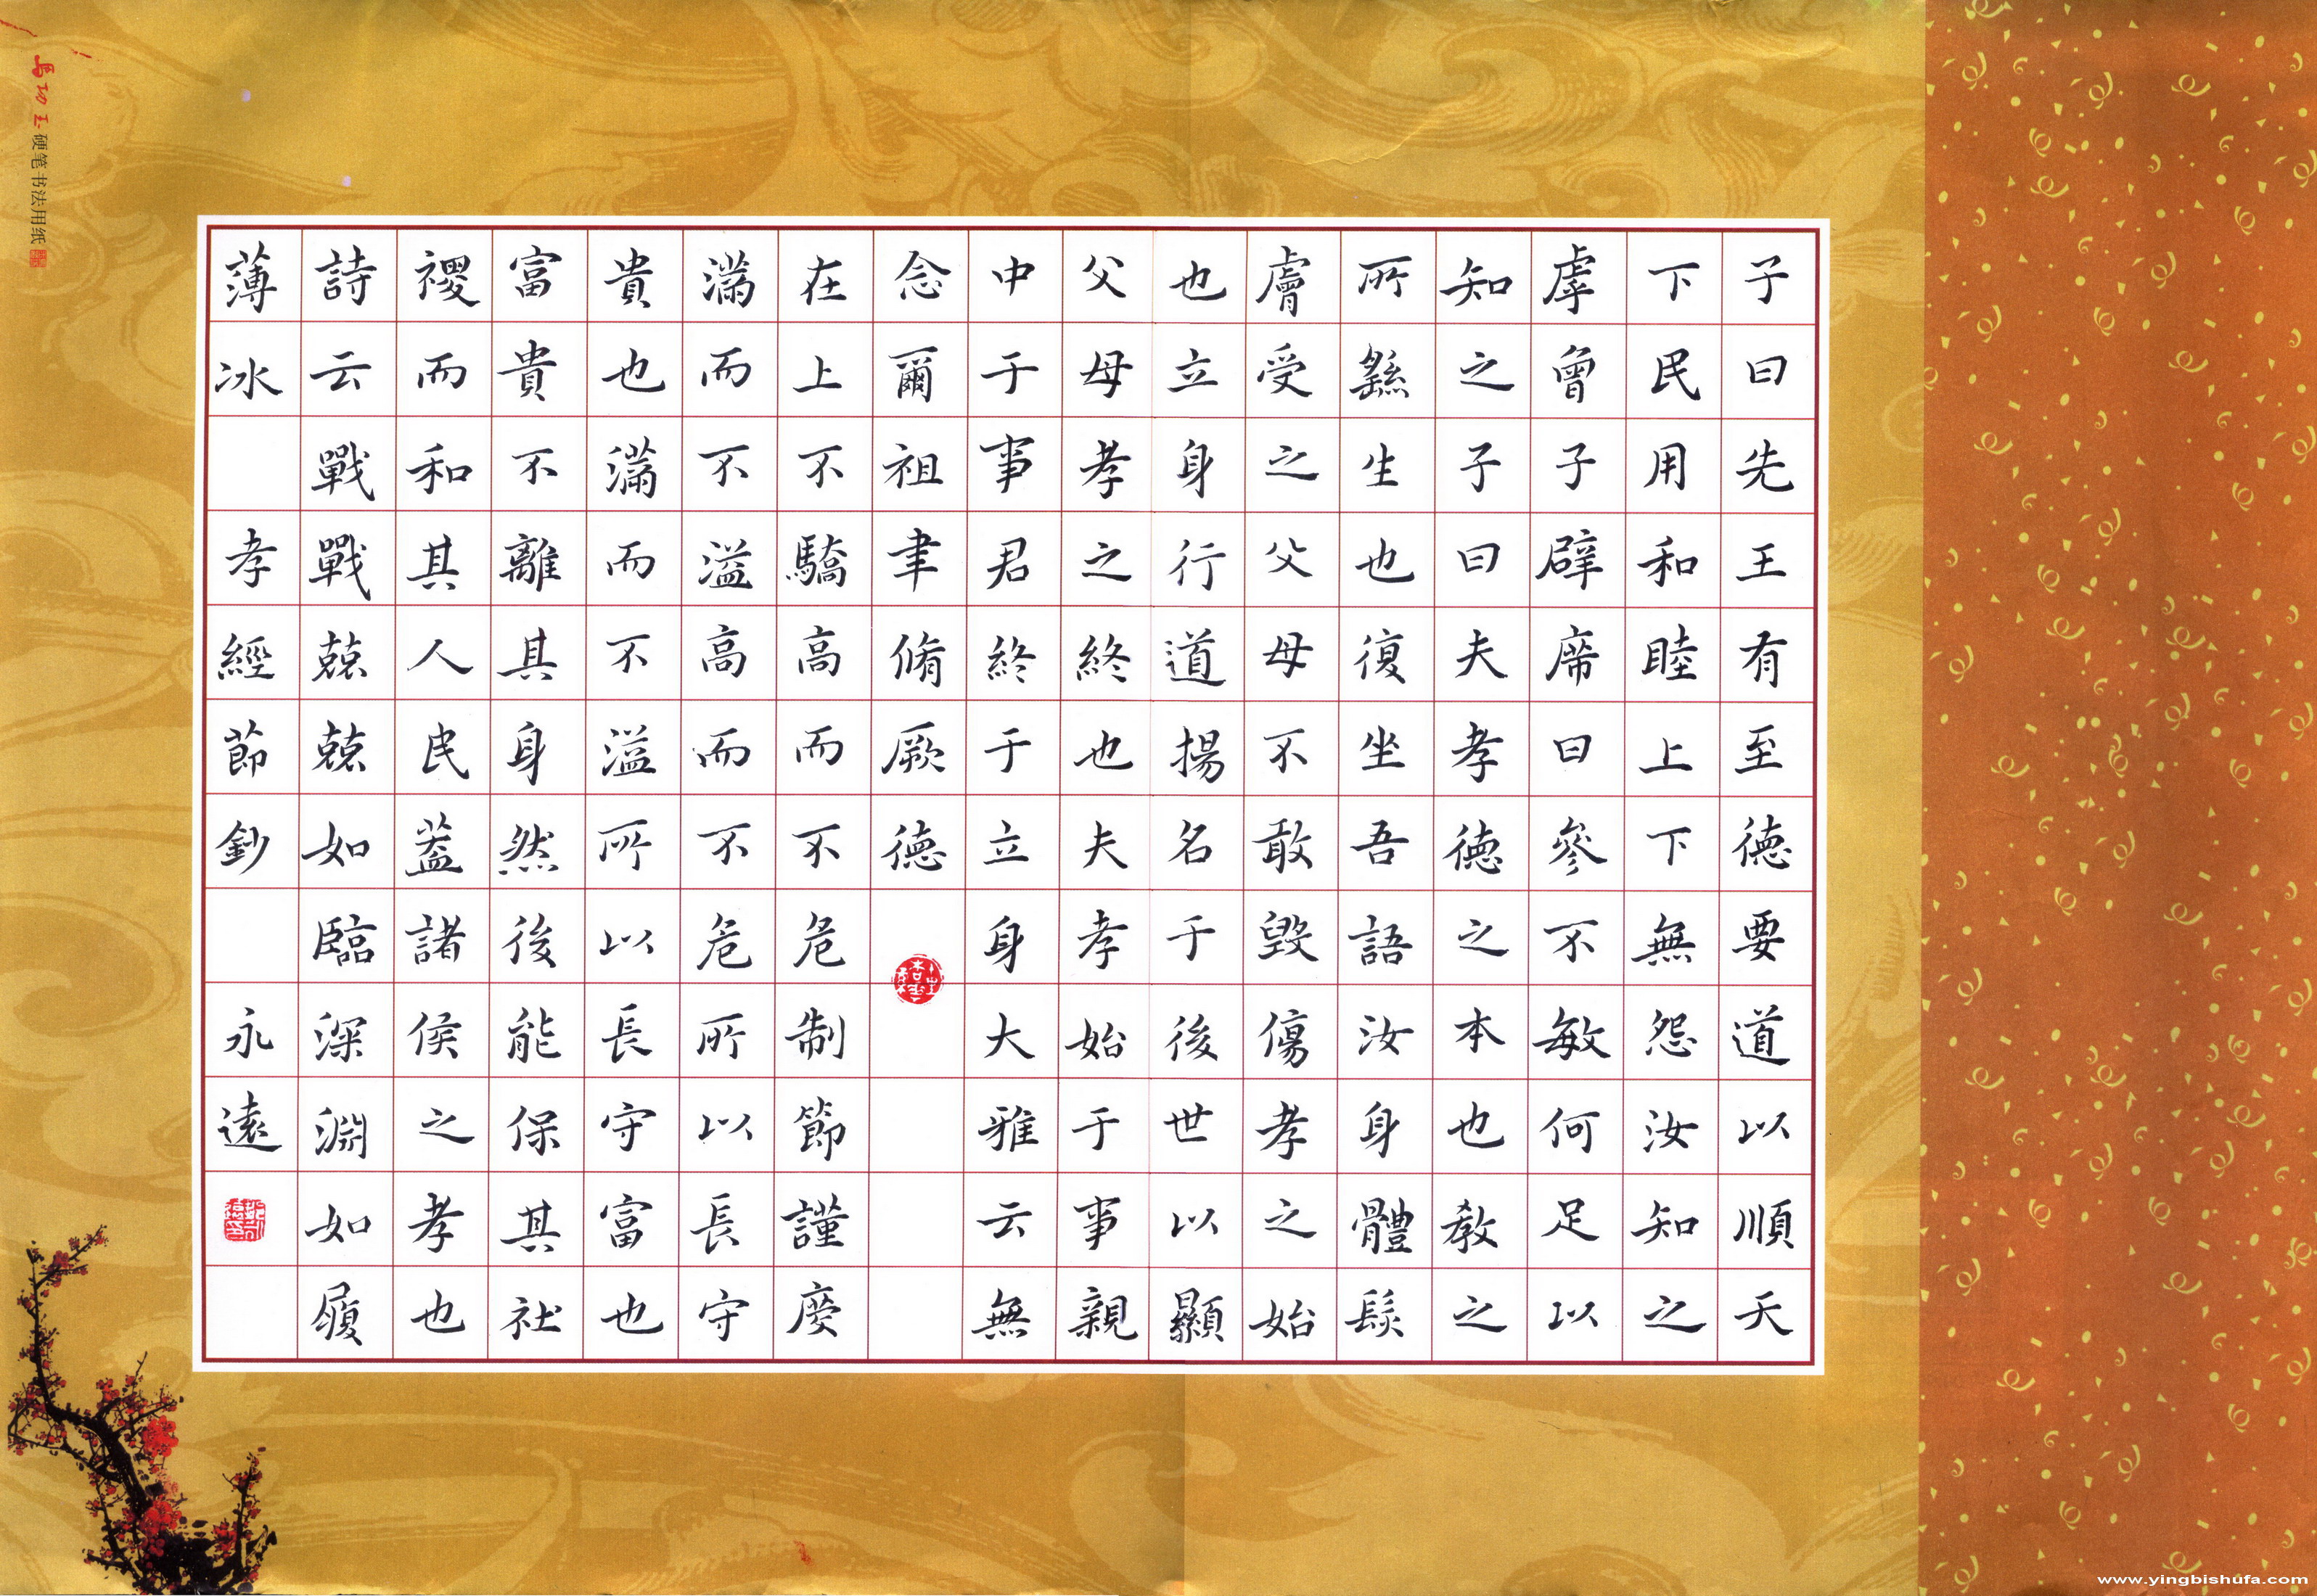 子曰先王有至德要道以順天
下民用和睦上下無怨汝知之
虖曾子辟席曰參不敏何足以
知之子曰夫孝德之本也教之
所繇生也復坐吾語汝身體髮
膚受之父母不敢毀傷孝之始
也立身行道揚名于後世以顯
父母孝之終也夫孝始于事親
中于事君終于立身大雅云無
念爾祖聿脩厥德
在上不驕高而不危制節謹度
滿而不溢高而不危所以長守
貴也滿而不溢所以長守富也
富貴不離其身然後能保其社
稷而和其人民蓋諸侯之孝也
詩云戰戰兢兢如臨深淵如履
薄冰 孝經節鈔 永遠
硬笔书法用纸
www.yingbishufa.com